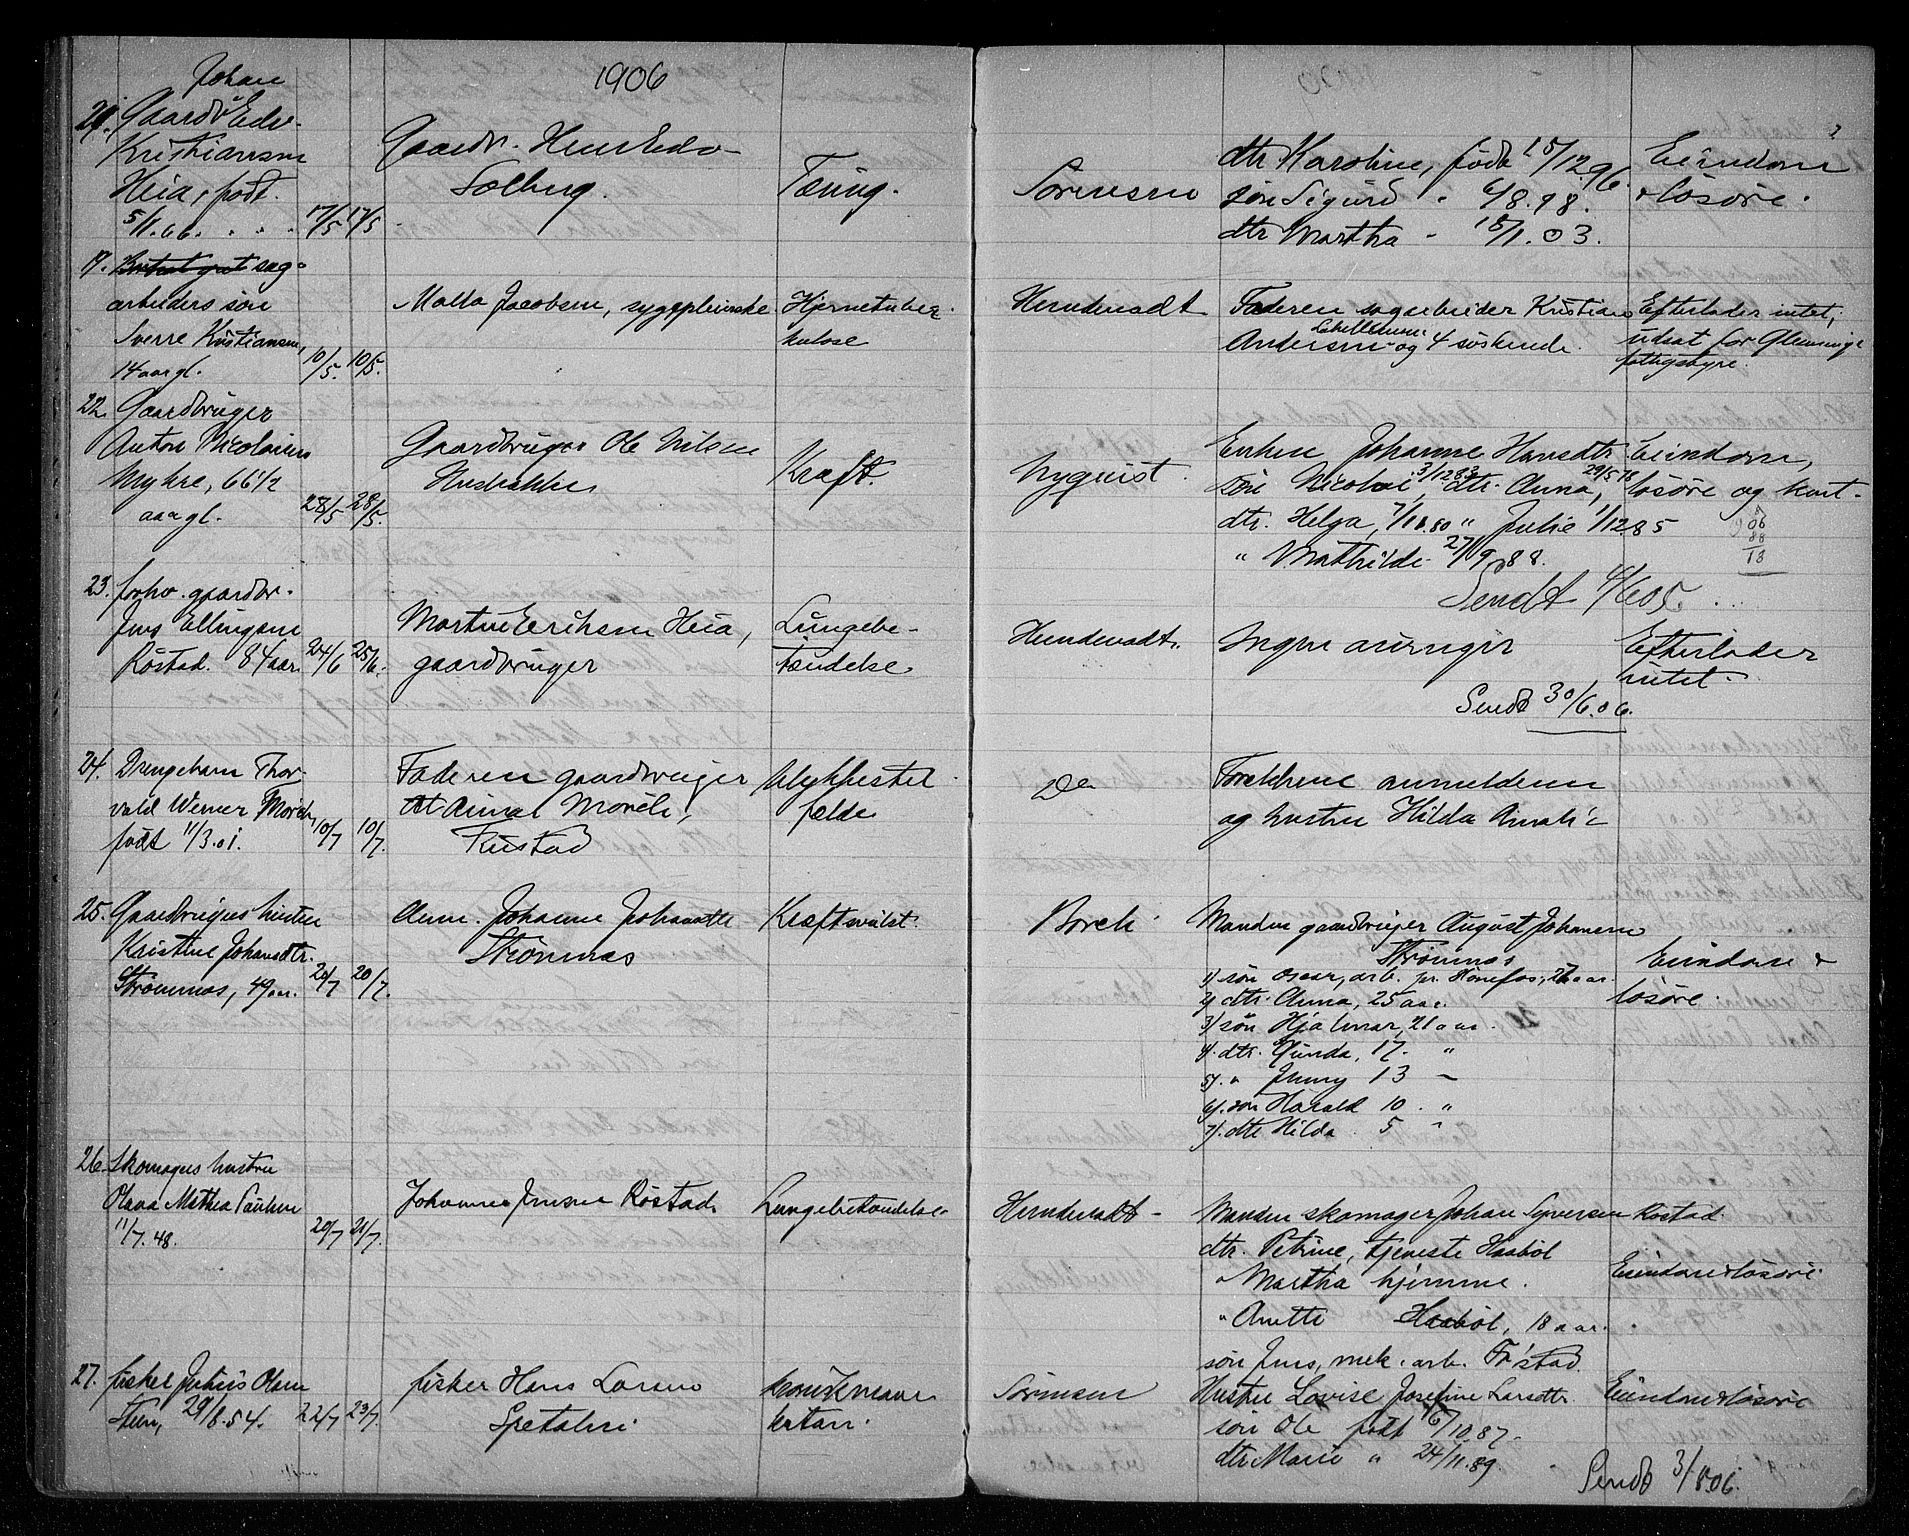 1906
Johan
21. Gaardbr Edv.
Kristiansen
Heia, født
5/1.66. 17/5 17/5
Gaardbr. Hans Edv
Solberg.
Tæring.
Sørensen
dtr Karoline, født 15/12 96.
søn Sigurd " 6/8.98.
dtr Martha - 18/1.03.
Eiendom
& løsøre.
17. sag-
arbeiders søn
Sverre Kristiansen,
14 aar gl. 10/5. 10/5.
Malla Jacobsen, sygepleierske
Hjernetuber-
kulose
Hemdenadt
Faderen sagarbeider Kristian
Andersen og 4 søskende.
Efterlader intet,
udsat for Glemminge
fattigstyre.
22. Gaardbruger
Anton Nicolaisen
Myhre, 66 1/2
aar gl. 28/5 28/5.
Gaardbruger Ole Nilsen
Husbakke
Kræft.
Nyquist.
Enken Johanne Hansdtr.
søn Nicolai, 3/12 83, dtr. Anna, 29/5 78
dtr. Helga, 7/11.80 " Julie 1/12 85
" Mathilde 27/9.88.
Eiendom,
løsøre og kont.
06
88
18
Sendt 6/6 05.
23. forhv. gaardbr.
Jens Ellingsen
Røstad. 84 aar 24/6 25/6.
Martin Eriksen Heia,
gaardbruger
Lungebe-
tændelse
Hemdenadt.
Ingen arvinger
Efterlader
intet.
Sendt 30/6.06.
24. Drengebarn Thor-
vald Werner Mørch,
født 11/3.01. 10/7 10/7.
Faderen gaardbruger
Mørch,
Kustad
Ulykkestil-
fælde
Do
Forældrene anmelderen
og hustru Hilda Amalie
25. Gaardbrugers hustru
Kristine Johansdtr.
Strømnæs, 49 aar. 20/7 20/7.
Anne Johanne Johansdtr
Strømnæs
Kræftsvulst.
Borch
Manden gaardbruger August Johansen
Strømnæs
1/ søn Oscar, arb. pr. Hønefos, 27 aar.
2/ dtr. Anna, 25 aar.
3/ søn Hjalmar, 21 aar.
4/. dtr. Gunda, 17. "
5/. " Jenny 13 -
6/. søn Harald 10. "
7/. dtr Hilda 5 "
Eiendom &
løsøre.
26. Skomagers hustru
Olava Mathea Paulsen
11/7.48. 20/7 21/7.
Johannes Jensen Røstad
Lungebetændelse
Hemdenadt -
Manden skomager Johan Syversen Røstad.
dtr. Petrine, tjeneste Haabøl
" Martha hjemme.
" Anette Haabøl, 18 aar.
søn Jens, mek. arb. Fr'stad.
Eiendom & løsøre.
27. fisker Julius Olsen
29/8.54. 22/7 23/7.
fisker Hans Larsen
Spetalen
kronisk mave-
katarr.
Sørensen
Hustru Lovise Josefine Larsdtr.
søn Ole født 16/10.87.
dtr Marie " 24/11.89.
Eiendom & løsøre
Sendt 3/8 06.